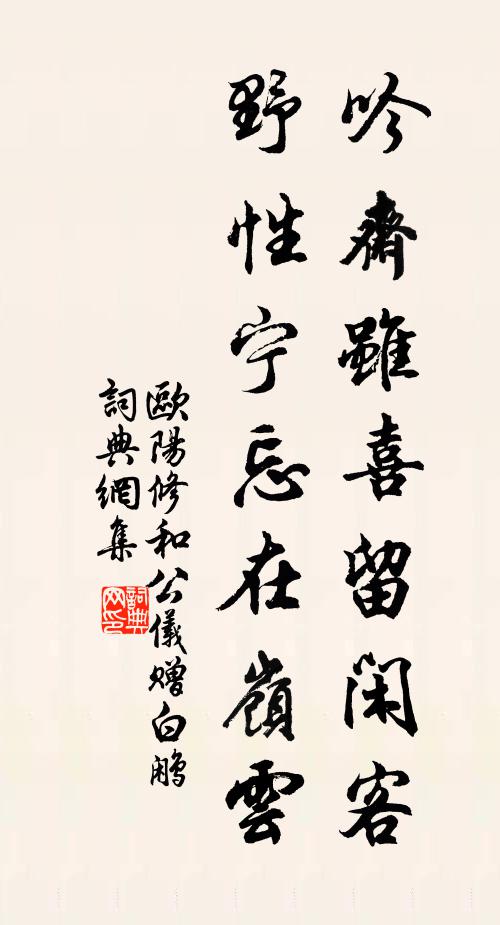 吟齋雖喜留閑客
野性宁忘在嶺雲
歐陽修和公儀贈白鷴
詞典網集
詞典網印